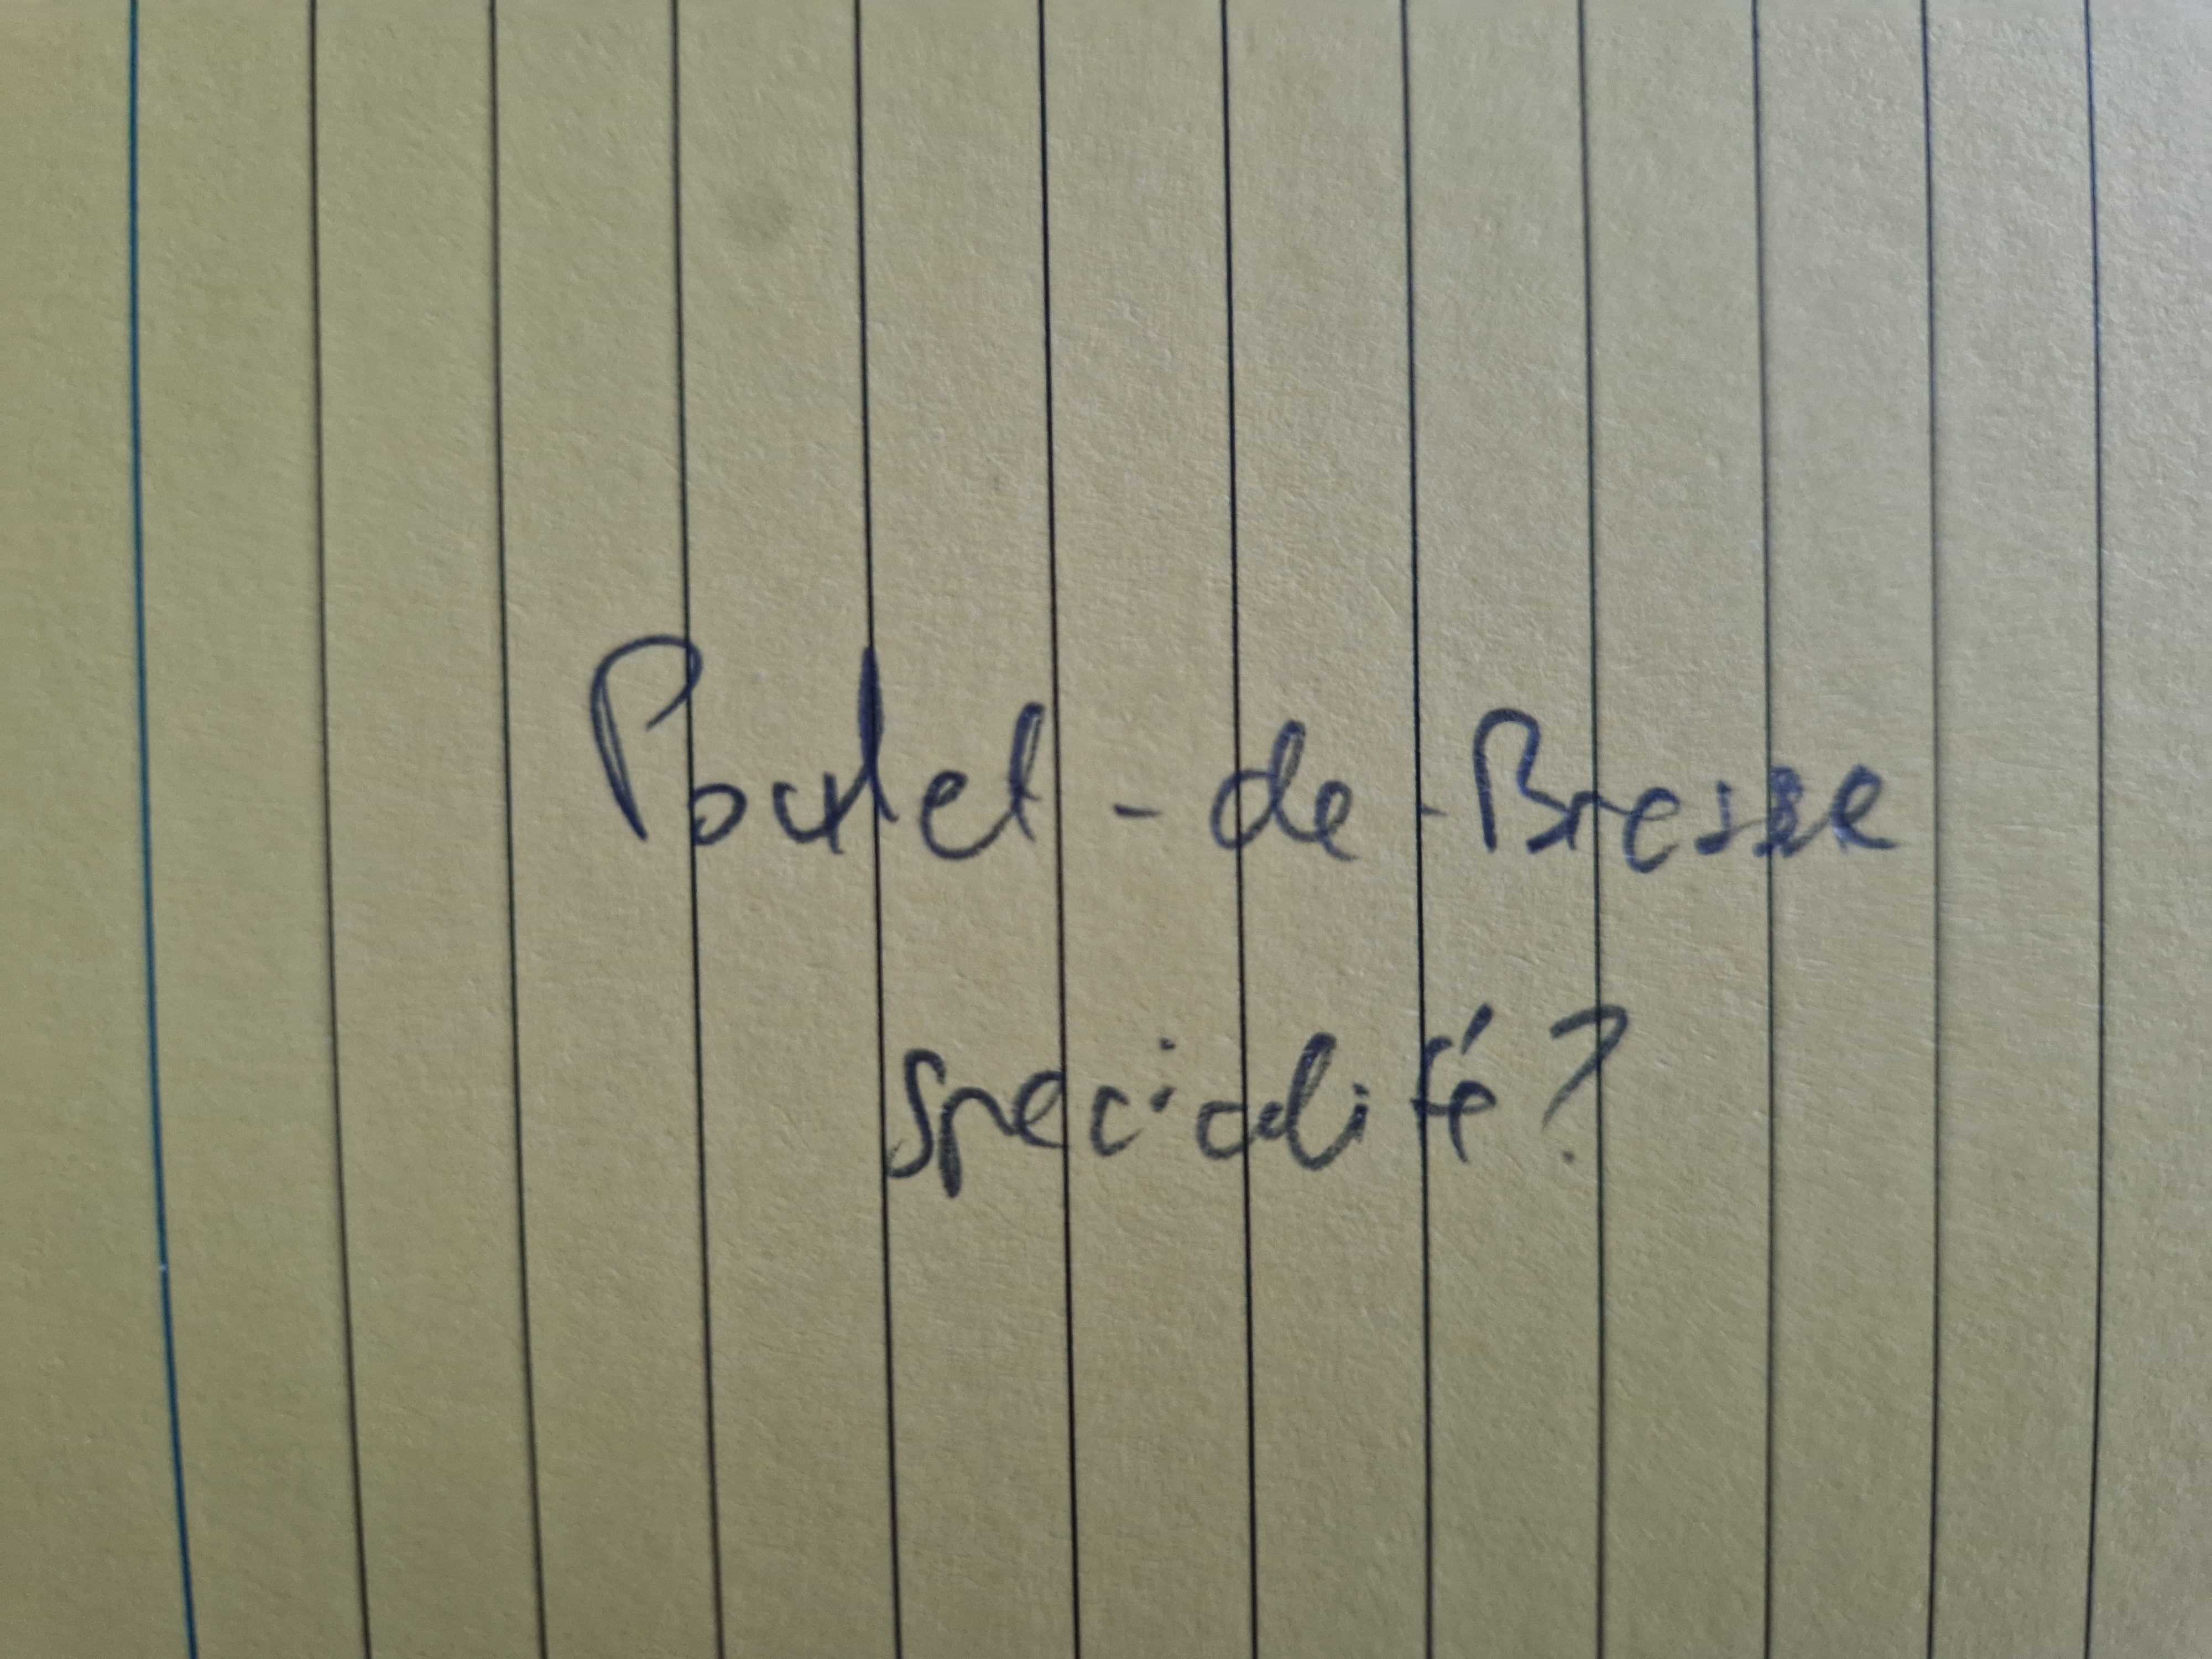 Poulet-de-Bresse
spécialité?